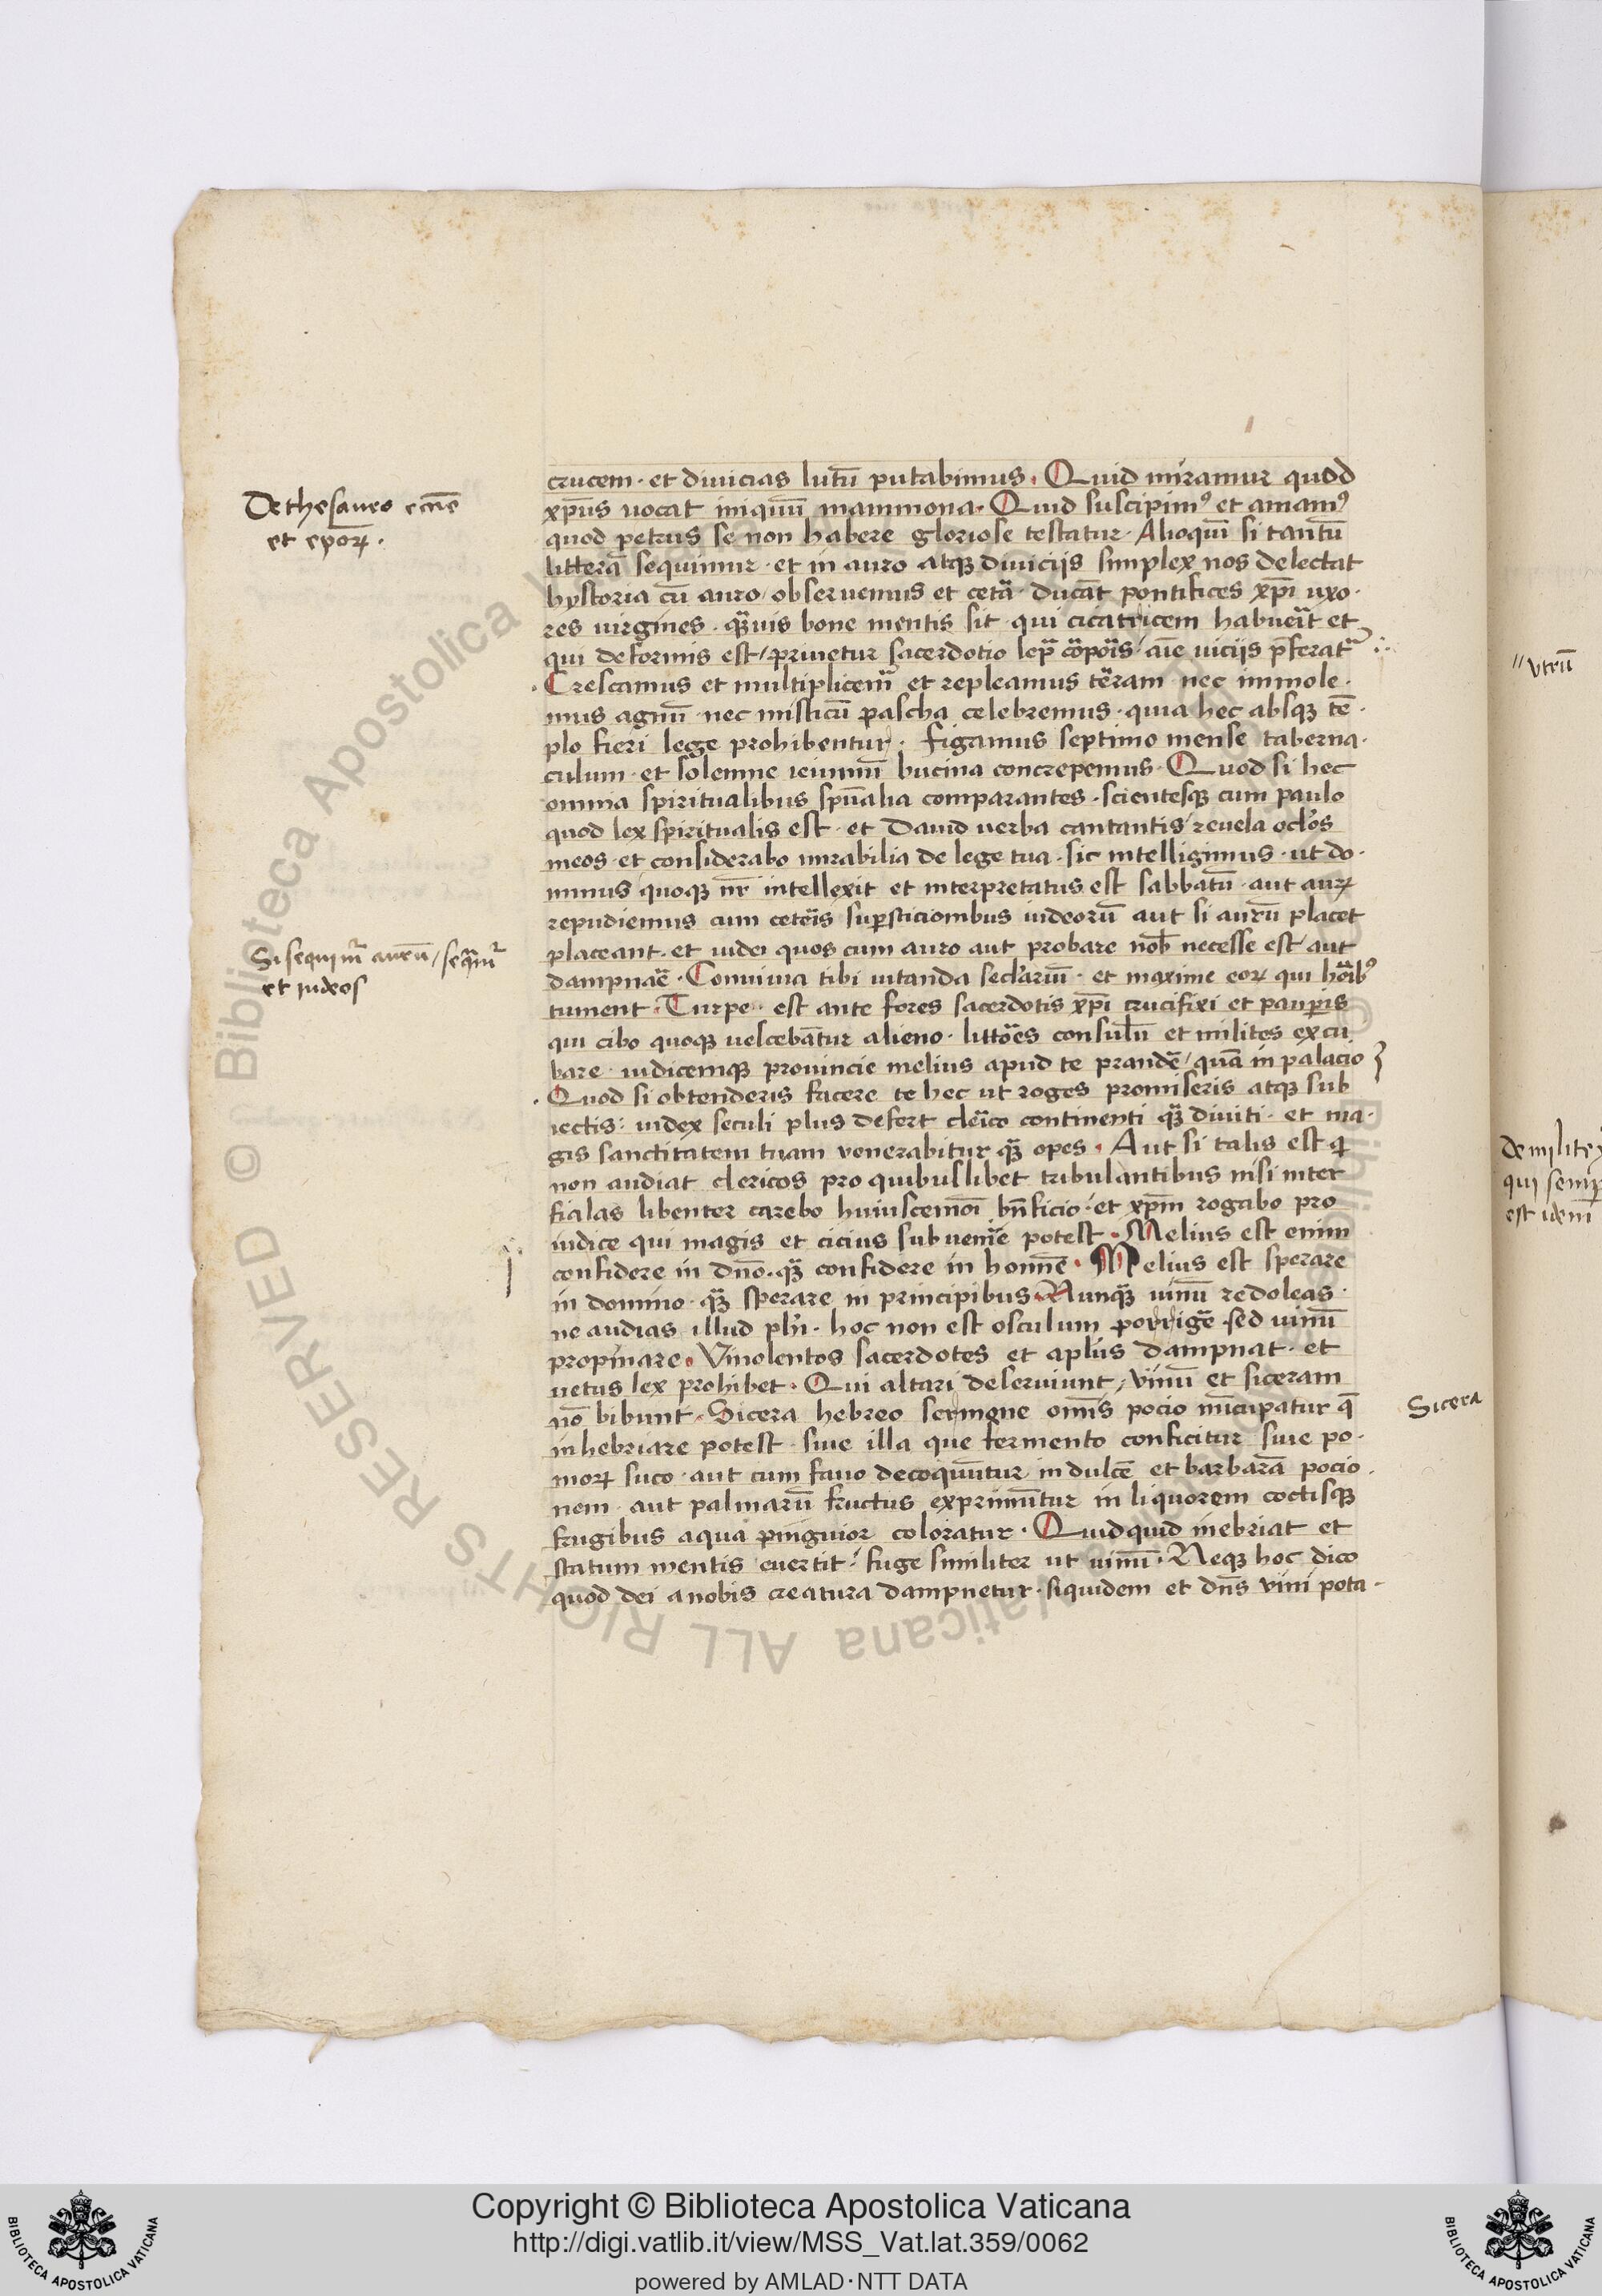 crucem · et diuicias lutū putabimus · Quid miramur quod
xp̄us uocat iniquū mammona · Quid suscipimꝰ et amamꝰ
quod petrus se non habere gloriose testatur · Alioquī si tantū
litterā sequimur · et in auro atqꝫ diuicijs simplex nos delectat
hystoria cū auro / obseruemus et cetā · ducāt pontifices xp̄i uxo ·
res uirgines · qͣuis bone mentis sit · qui cicatricem habueͣit et
qui deformis est / priuetur sacerdotio lepͣ cōpoͣis / aīe uicijs p̄feratͣ
Crescamus et multiplicemͣ et repleamus teͣram · nec immole ·
mus agnū · nec misticū pascha celebremus · quia hec absqꝫ tē ·
plo fieri lege prohibentur · figamus septimo mense taberna ·
culum · et solemne ieiuniū bucina concrepemus · Quod si hec
omnia spiritualibus spūalia comparantes · scientesqꝫ cum paulo
quod lex spiritualis est · et Dauid uerba cantantis / reuela oclōs
meos · et considerabo mirabilia de lege tua · sic intelligimus · ut do ·
minus quoqꝫ nr̄ intellexit et interpretatus est sabbatū · aut auꝝ
repudiemus cum ceteͣis suꝑsticionibus iudeorū aut si aurū placet
placeant · et iudei quos cum auro aut probare nob̄ necesse est / aut
dampnaͣe · Conuiuia tibi uitanda seclariū · et maxime eoꝝ qui hōͣibꝰ
tument · Turpe est ante fores sacerdotis xp̄i crucifixi et pauꝑis
qui cibo quoqꝫ uescebātur alieno · littōes consulū et milites excu
bare · iudicemqꝫ prouincie melius apud te prandē / quā in palacio
Quod si obtenderis facere te hec ut roges promiseris atqꝫ sub
iectis : iudex seculi plus defert cleͥco continenti qͣ diuiti · et ma ·
gis sanctitatem tuam venerabitur qͣ opes · Aut si talis est qͥ
non audiat clericos pro quibuslibet tribulantibus nisi inter
fialas libenter carebo huiuscemōi bn̄ficio · et xp̄m rogabo pro
iudice qui magis et cicius subuenire potest · Melius est enim
confidere in dn̄o · qͣ confidere in homīe · Melius est sperare
in domino · qͣ sperare in principibus · Nunqͣ uinū redoleas ·
ne audias illud ph̄i · hoc non est osculum porrigē · sed uinū
propinare · Vinolentos sacerdotes et apl̄us dampnat · et
uetus lex prohibet · Qui altari deseruiunt / vinū et siceram
nō bibunt · Sicera hebreo sermone om̄is pocio nūcupatur q̄
inhebriare potest · siue illa que fermento conficitur siue po ·
moꝝ suco · aut cum fauo decoquūtur in dulcē et barbarā pocio ·
nem · aut palmarū fructus exprimūtur in liquorem coctisqꝫ
frugibus aqua pinguior coloratur · Quidquid inebriat et
statum mentis euertit · fuge similiter ut uinū · Neqꝫ hoc dico
quod dei a nobis creatura dampnetur · siquidem et dn̄s vini pota ·
De thesauro eccl̄ie
et epoꝝ ·
Si sequimͬ aurū / seqͣmͬ
et iudeos
Sicera
// vtrū
De milite
qui semꝑ
est idem
© Biblioteca Apostolica Vaticana ALL RIGHTS RESERVED
Copyright © Biblioteca Apostolica Vaticana
http://digi.vatlib.it/view/MSS_Vat.lat.359/0062
powered by AMLAD·NTT DATA
BIBLIOTECA APOSTOLICA VATICANA
BIBLIOTECA APOSTOLICA VATICANA